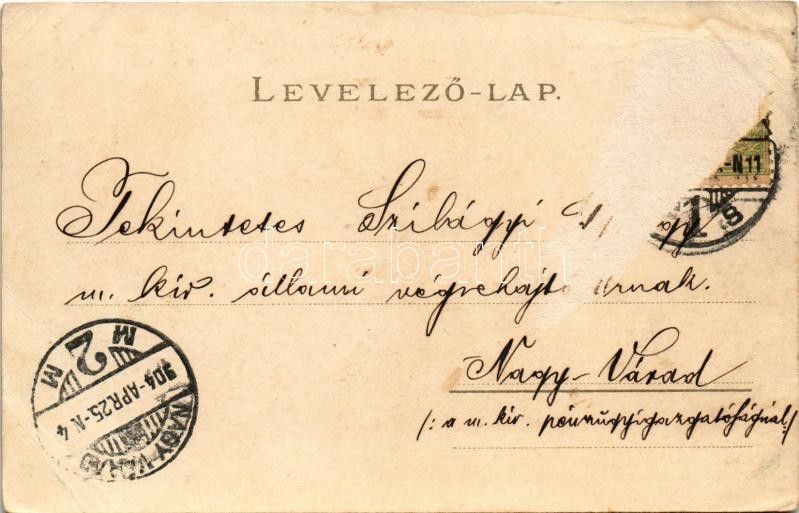 LEVELEZŐ-LAP.
-N11
1
S
Tekintetes Szilágyi
m. kir. állami végrehajtó urnak.
Nagy-Várad
/: a m. kir. pénzügyigazgatóságnál :/
M 2 M
904-APR25-N4
NAGY-VÁRAD
darabanth